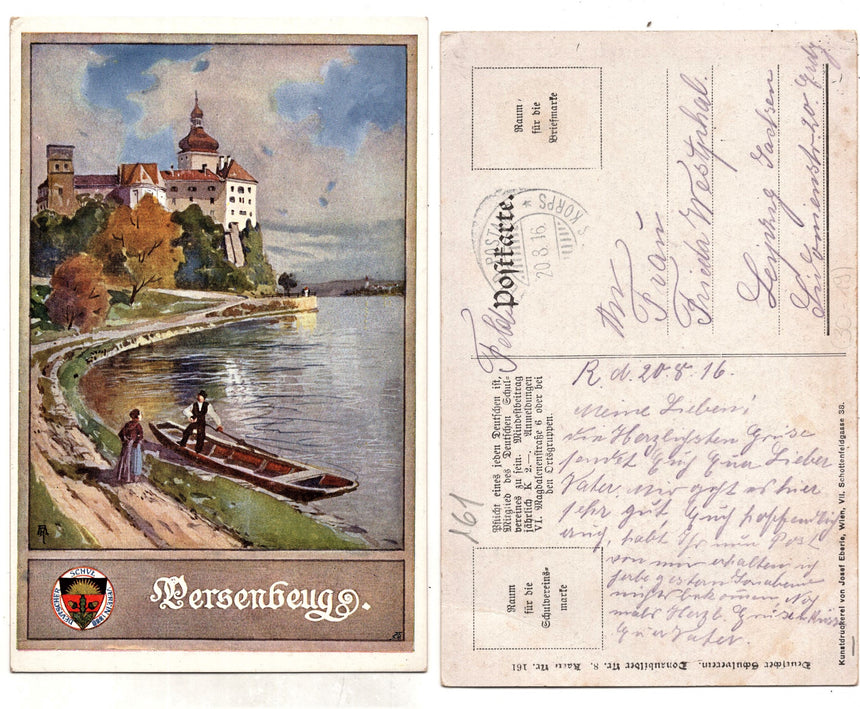 DEUTSCHER SCHUL
VEREIN 1880
Persenbeug.
Raum
für die
Briefmarke
Postkarte.
20.8.16.
KORPS
Feld
An
Frau
Friedr Westphal.
Leipzig Sachsen
Pflicht eines jeden Deutschen ist,
Mitglied des Deutschen Schul-
vereines zu sein. Mindestbeitrag
jährlich K 2.—. Anmeldungen
VI. Magdalenenstraße 6 oder bei
den Ortsgruppen.
Raum
für die
Schulvereins-
marke
161
R. d. 20.8.16.
Meine Lieben!
Die Herzlichsten Grüse
sendet Euch Euer Lieber
Vater, mir geht es hier
sehr gut Euch hoffendlich
auch, habt Ihr nun Post
von mir erhalten, ich
habe gestern Sonabend
nichts bekommen, Noch
mals Herzl. Grüse & Küsse
Euer Vater.
Deutscher Schulverein. Donaubilder Nr. 8. Karte Nr. 161
Kunstdruckerei von Josef Eberle, Wien, VII. Schottenfeldgasse 38.